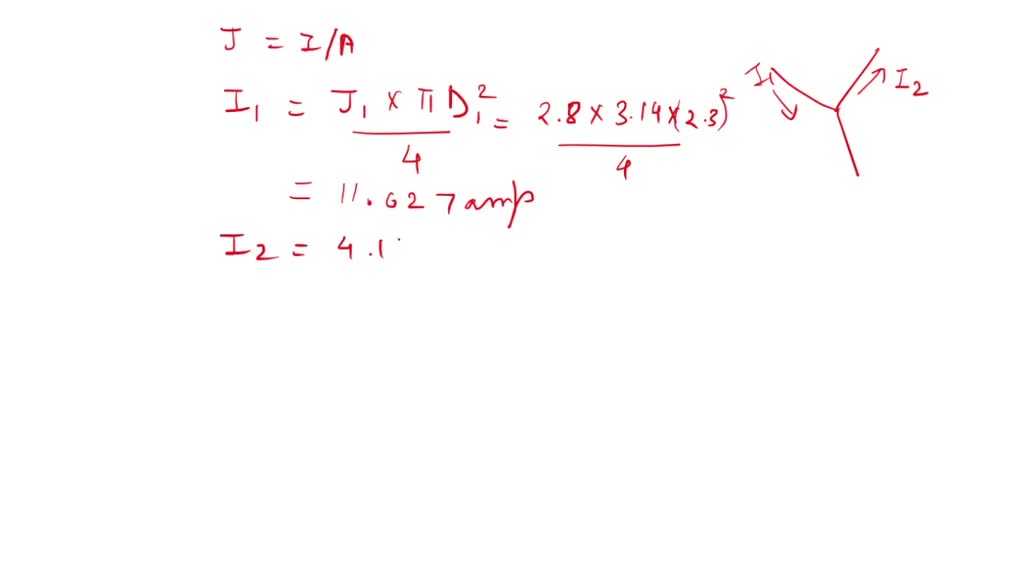 J = I/A
I₁ = J₁ × π D₁² / 4 = 2.8 × 3.14 × (2.3)² / 4
= 11.627 amp
I₂ = 4.1
I₁
I₂